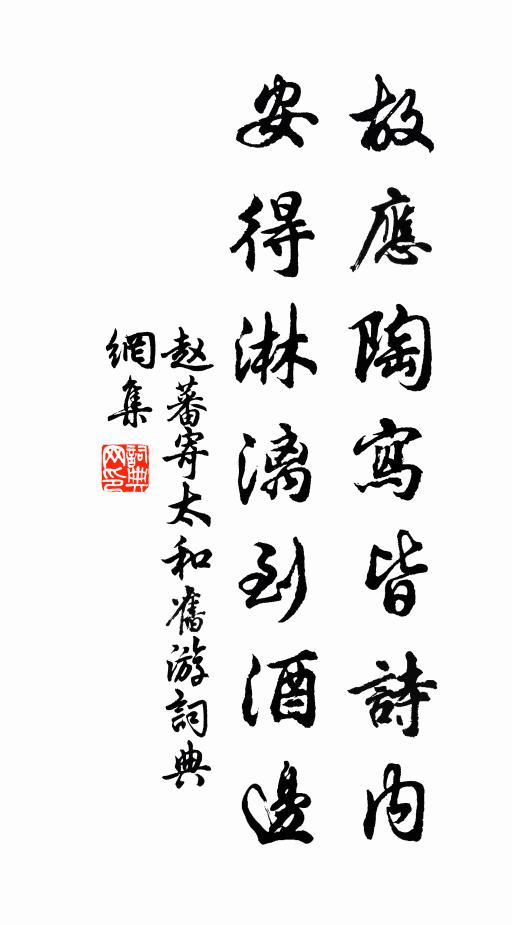 故應陶寫皆詩内
安得淋漓到酒邊
赵蕃寄太和舊游詞典
網集
詞典
网印